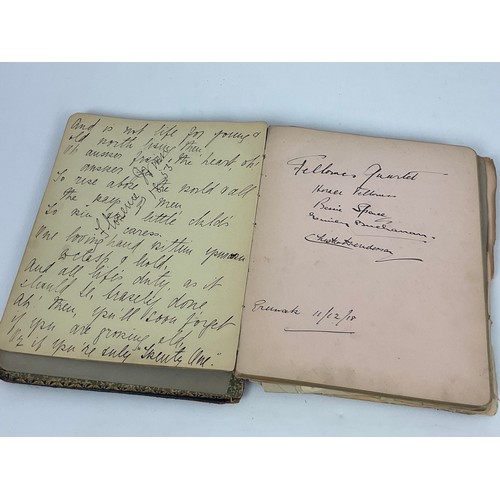 And is not life for young &
old worth living then
Oh answer from the heart, oh!
answer
To rise above the world & all
the ways of men
To win a little child's
caress.
One loving hand within your own
to clasp & hold,
And all life's duty, as it
should be, bravely done
Ah! then, you'll soon forget
if you are growing old,
Or if you're only "Twenty One".
Fellowes Quartet
Horace Fellowes
Greenock 11/12/18